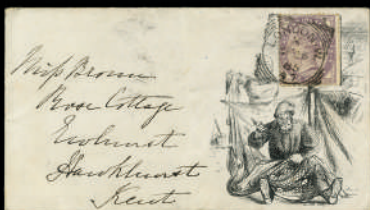 Miss Brown
Rose Cottage
Ewhurst
Hawkhurst
Kent
LONDON